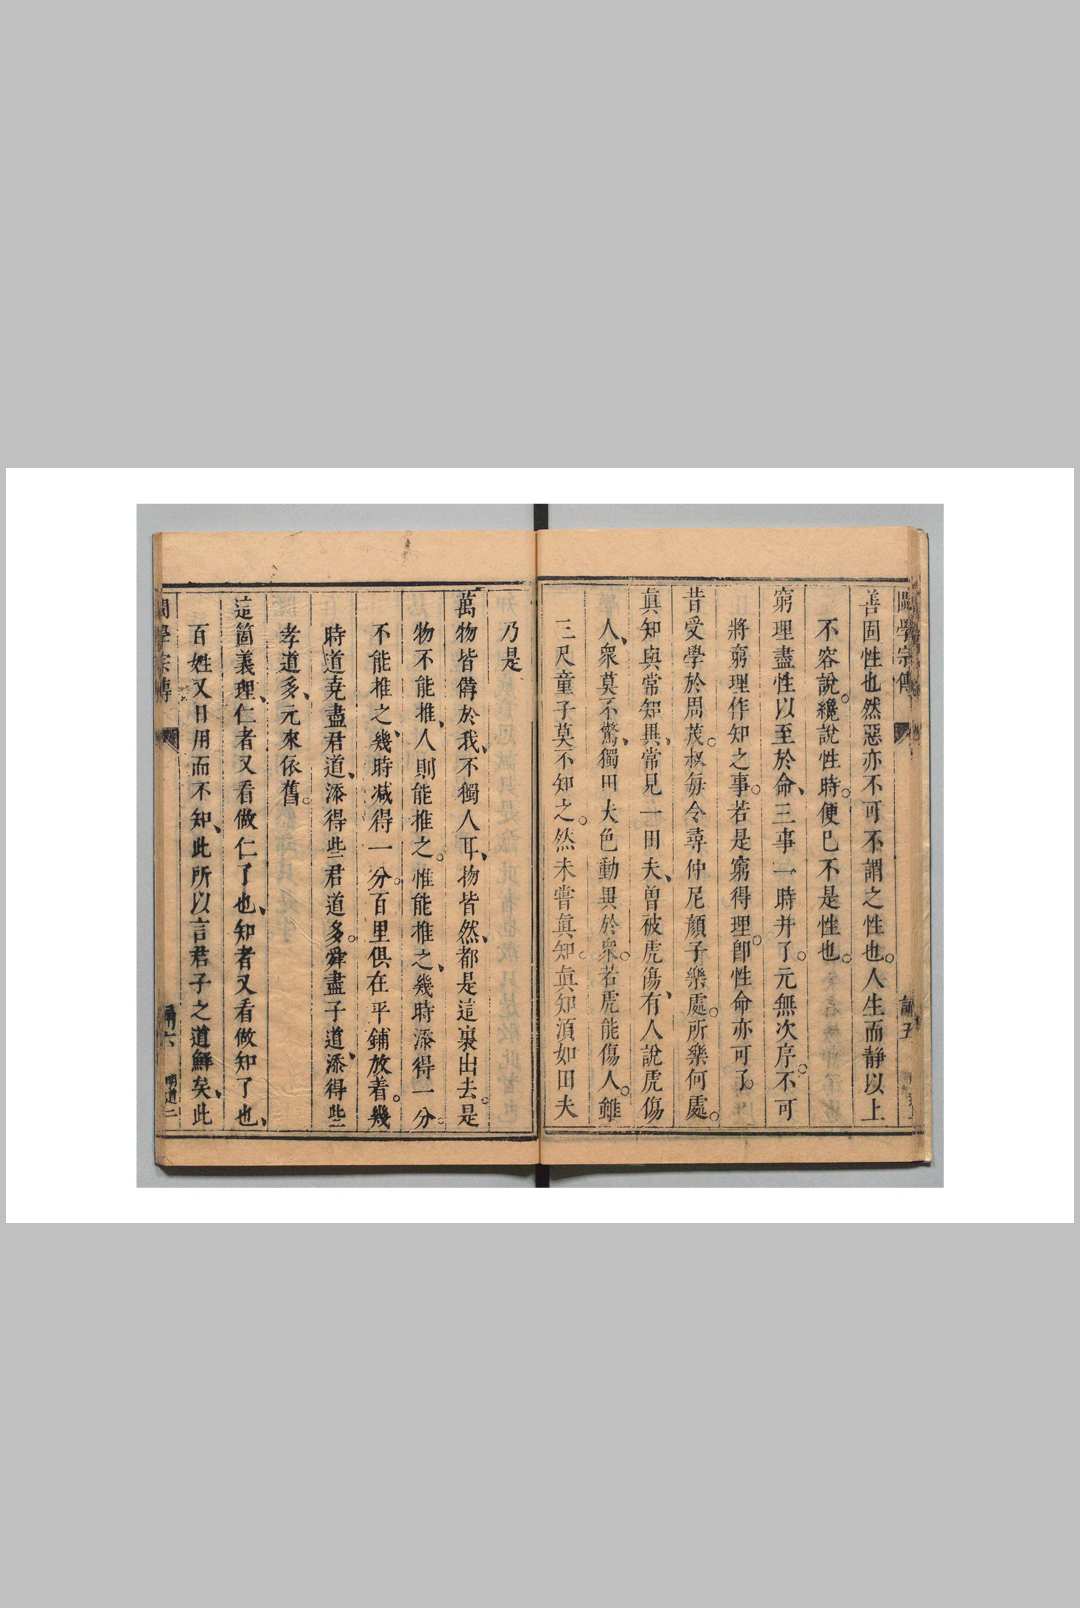 善固性也然惡亦不可不謂之性也。人生而靜以上
不容說。纔說性時。便已不是性也。
窮理盡性以至於命、三事一時并了。元無次序。不可
將窮理作知之事。若是窮得理。卽性命亦可了。
昔受學於周茂叔。每令尋仲尼顏子樂處。所樂何處。
眞知與常知異、常見一田夫、曾被虎傷、有人說虎傷
人、衆莫不驚、獨田夫色動異於衆。若虎能傷人。雖
三尺童子莫不知之。然未嘗眞知。眞知須如田夫
乃是
萬物皆備於我、不獨人耳、物皆然、都是這裏出去。是
物不能推、人則能推之。惟能推之、幾時添得一分。
不能推之、幾時減得一分。百里俱在平鋪放着。幾
時道堯盡君道、添得些君道多。舜盡子道、添得些
孝道多、元來依舊。
這箇義理、仁者又看做仁了也、知者又看做知了也、
百姓又日用而不知、此所以言君子之道鮮矣、此
六
明道二